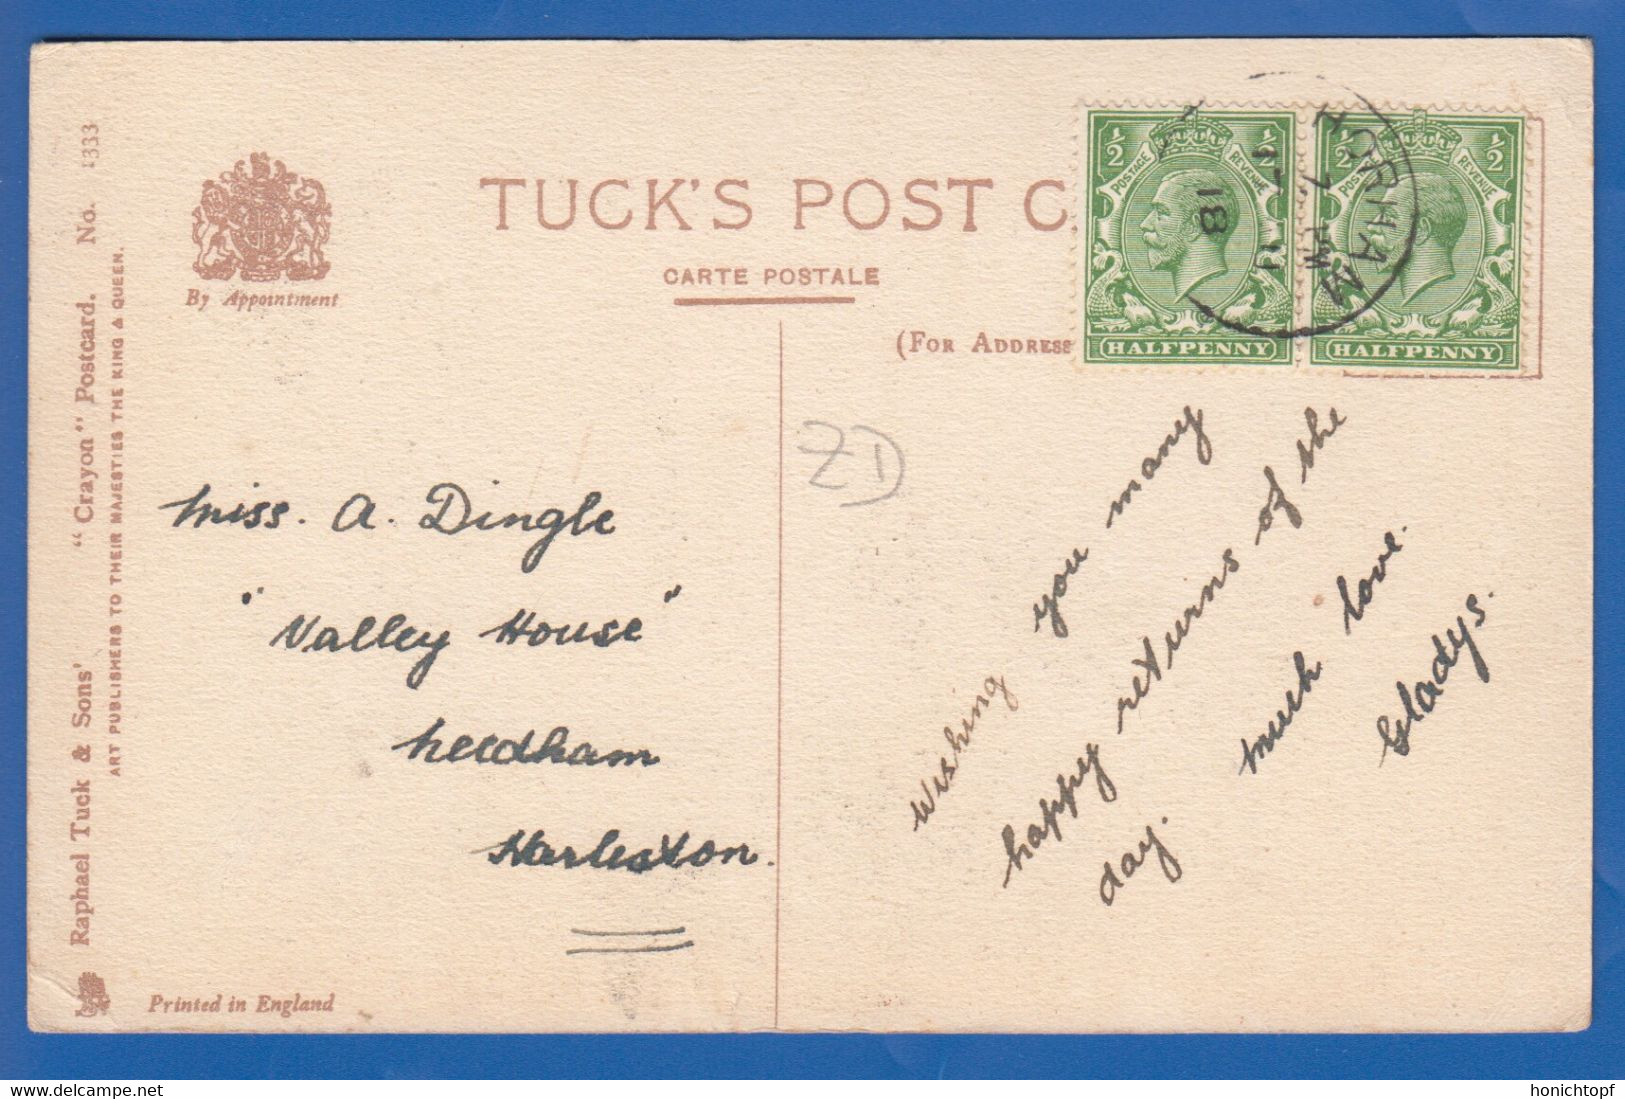 Raphael Tuck & Sons' "Crayon" Postcard. No. 1333
ART PUBLISHERS TO THEIR MAJESTIES THE KING & QUEEN.
By Appointment
TUCK'S POST C
CARTE POSTALE
(FOR ADDRESS
1/2 1/2
POSTAGE REVENUE
HALFPENNY
1/2 1/2
POS REVENUE
HALFPENNY
HORHAM
7 PM
11
18
ZD
Miss. A. Dingle
"Valley House"
Needham
Harleston.
Wishing you many
happy returns of the
day. Much love.
Gladys.
Printed in England
www.delcampe.net
honichtopf